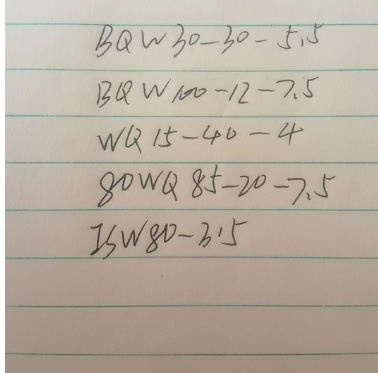 BQW30-30-5.5
BQW100-12-7.5
WQ15-40-4
80WQ85-20-7.5
ISW80-315